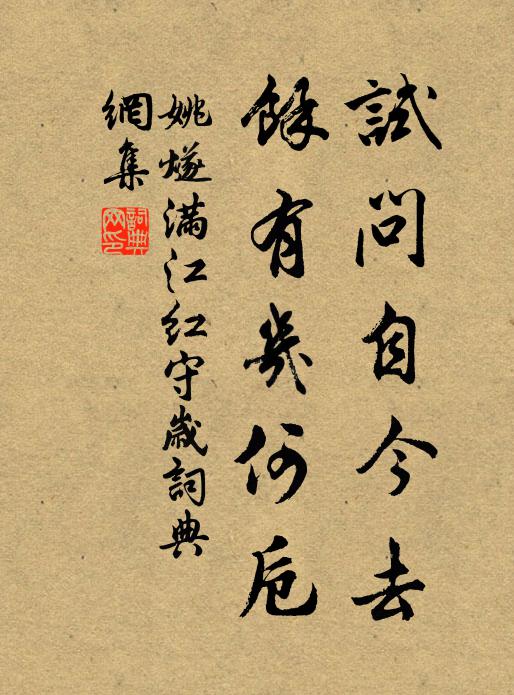 試問自今去
餘有幾何卮
姚燧滿江紅守歲詞典
網集
詞典
网印